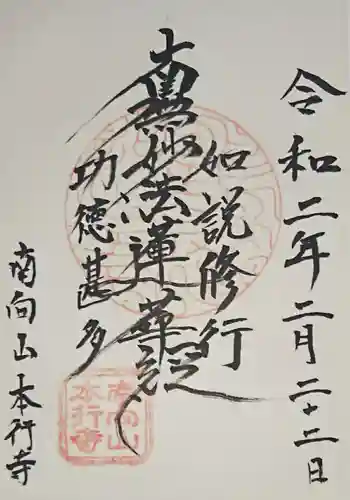 令和二年二月二十二日
如説修行
南無妙法蓮華経
功徳甚多
南向山本行寺
南向山
本行寺